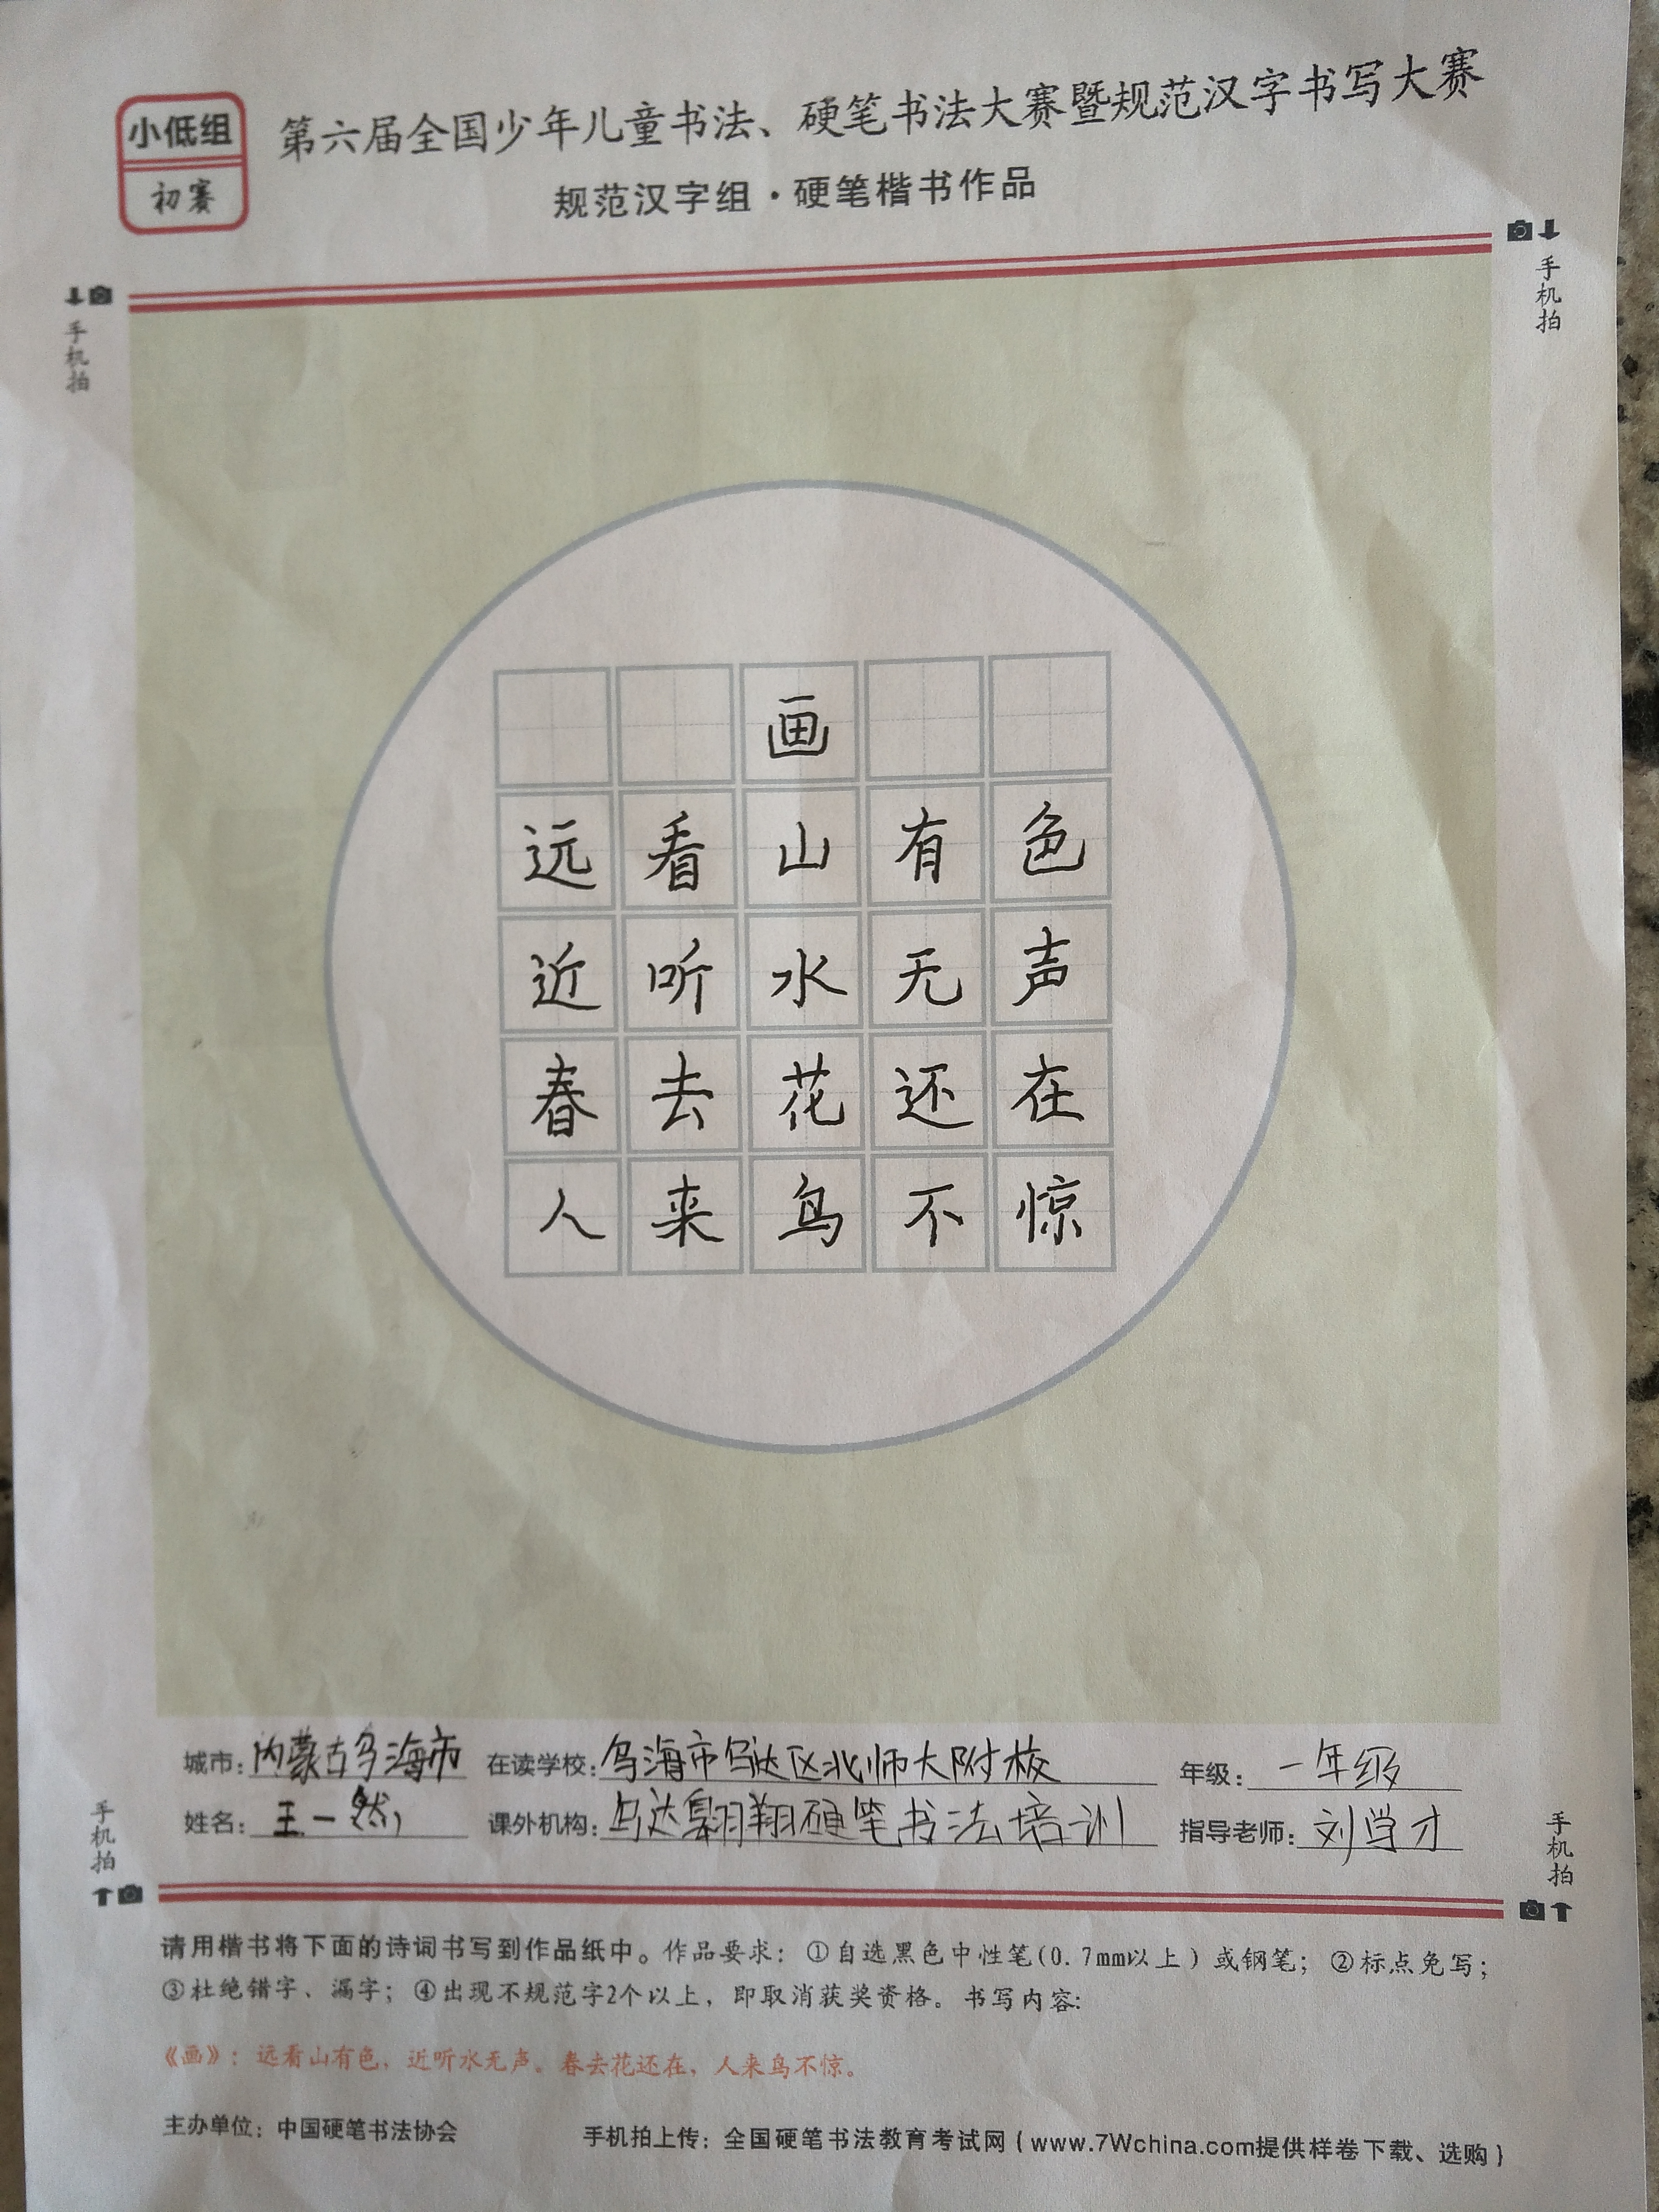 小低组
初赛
第六届全国少年儿童书法、硬笔书法大赛暨规范汉字书写大赛
规范汉字组·硬笔楷书作品
手机拍
手机拍
画
远看山有色
近听水无声
春去花还在
人来鸟不惊
城市: 内蒙古乌海市 在读学校: 乌海市乌达区北师大附校 年级: 一年级
姓名: 王一然 课外机构: 乌达翱翔硬笔书法培训 指导老师: 刘学才
手机拍
手机拍
请用楷书将下面的诗词书写到作品纸中。作品要求：①自选黑色中性笔(0.7mm以上）或钢笔；②标点免写；
③杜绝错字、漏字；④出现不规范字2个以上，即取消获奖资格。书写内容:
《画》：远看山有色，近听水无声。春去花还在，人来鸟不惊。
主办单位：中国硬笔书法协会 手机拍上传：全国硬笔书法教育考试网（www.7Wchina.com提供样卷下载、选购）